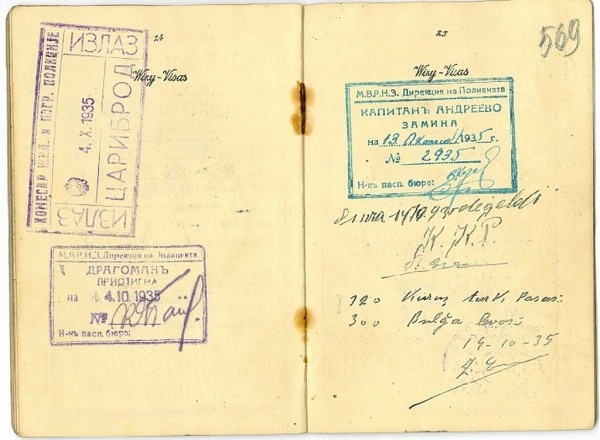 24
Wizy-Visas
КОМЕСАР ЖЕЛ. И ПОГР. ПОЛИЦИЈЕ
ИЗЛАЗ
4. X. 1935
ЦАРИБРОД
ИЗЛАЗ
М.В.Р.Н.З. Дирекция на Полицията
ДРАГОМАНЪ
ПРИСТИГНА
на 4.10.1935
№
Н-къ пасп. бюро:
569
25
Wizy-Visas
М.В.Р.Н.З. Дирекция на Полицията
КАПИТАНЪ АНДРЕЕВО
ЗАМИНА
на 13 1935 г.
№ 2935
Н-къ пасп. бюро:
K. K. P.
320 Kuruş Türk Parası
300 Bulğa
14-10-35